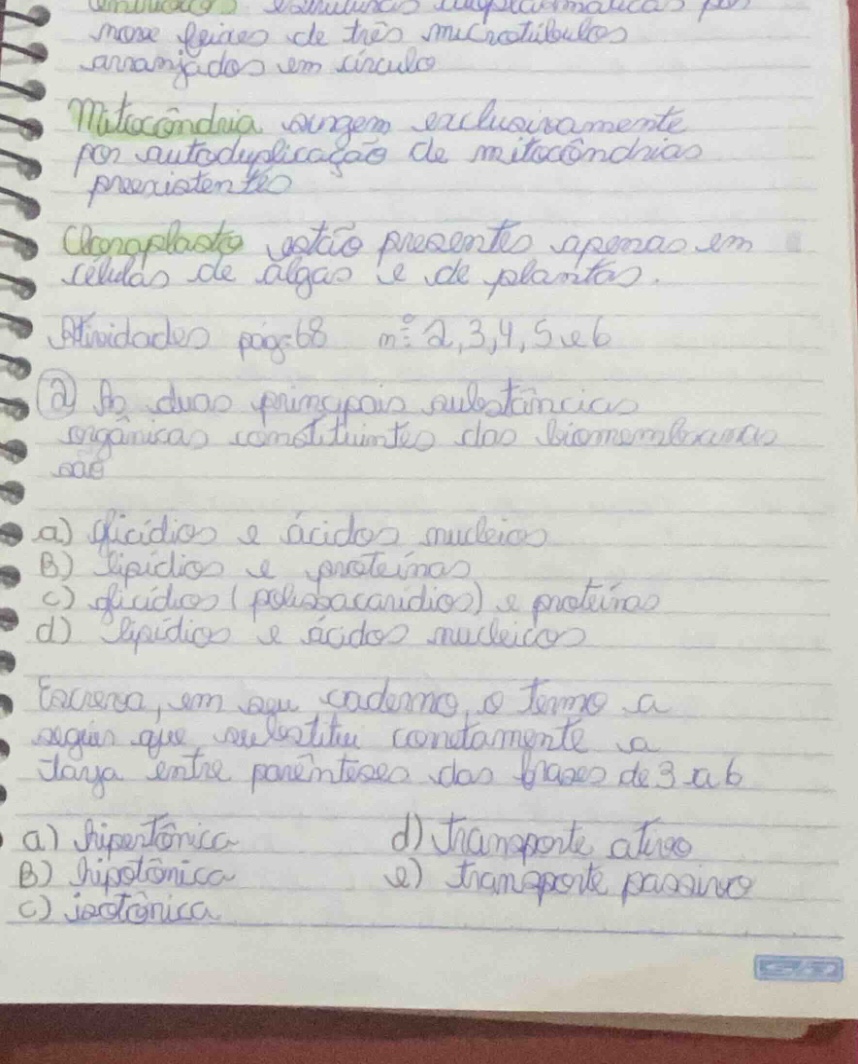 nove feixes de três microtúbulos
arranjados em círculo
Mitocôndria surgem exclusivamente
por autoduplicação de mitocôndrias
preexistentes
Cloroplasto estão presentes apenas em
células de algas e de plantas.
Atividades pág=68 nº: 2,3,4,5 e 6
2 As duas principais substâncias
orgânicas constituintes das biomembranas
são
a) glicídios e ácidos nucleios
B) lipídios e proteínas
c) glicídios (polissacarídios) e proteínas
d) lipídios e ácidos nucleicos
Escreva, em seu caderno, o termo a
seguir que substitui corretamente a
tarja entre parênteses das frases de 3 a 6
a) hipertônica d) transporte ativo
B) hipotônica e) transporte passivo
c) isotônica